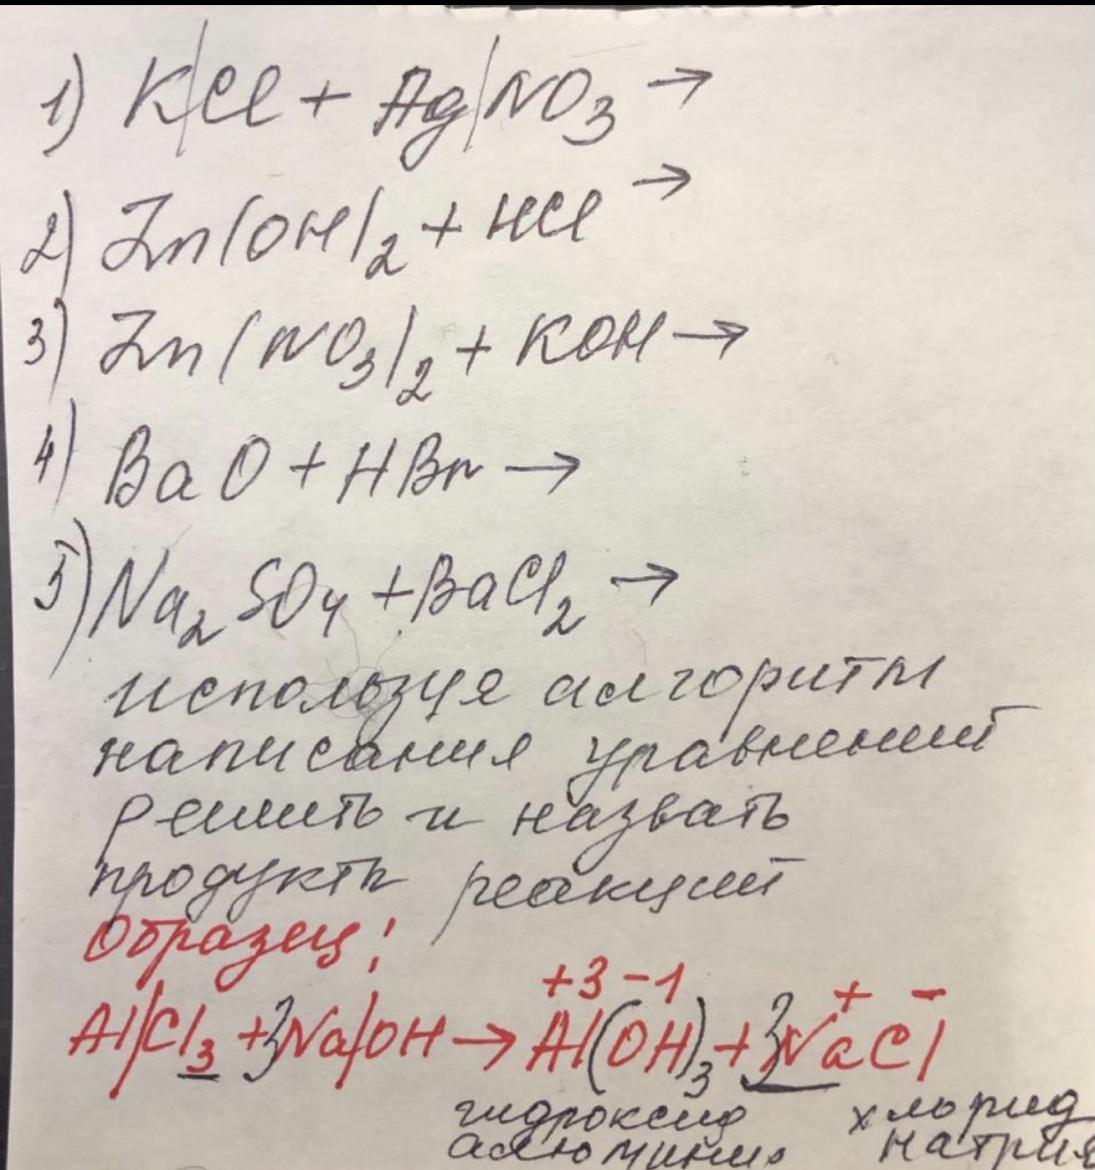 1) K|Cl + Ag|NO₃ →
2) Zn(OH)₂ + HCl →
3) Zn(NO₃)₂ + KOH →
4) BaO + HBr →
5) Na₂SO₄ + BaCl₂ →
используя алгоритм
написания уравнений
решить и назвать
продукты реакций
Образец:
+3 -1 + -
Al|Cl₃ + 3Na|OH → Al(OH)₃ + 3NaCl
гидроксид хлорид
алюминия натрия